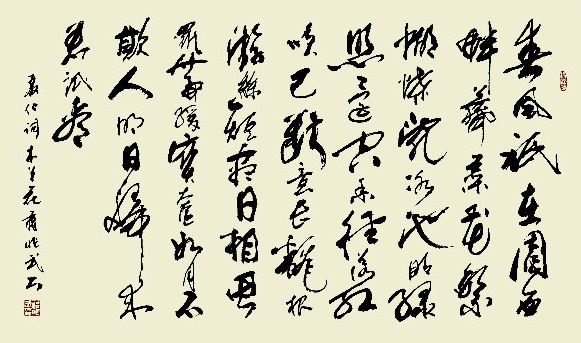 春風祇在園西
畔薺菜花繁
蝴蝶亂冰池晴綠
照還空香徑落紅
吹已斷意長翻恨
游絲短盡日相思
羅帶緩寶奩如月不
欺人明日歸來
君試看
嚴仁詞木蘭花